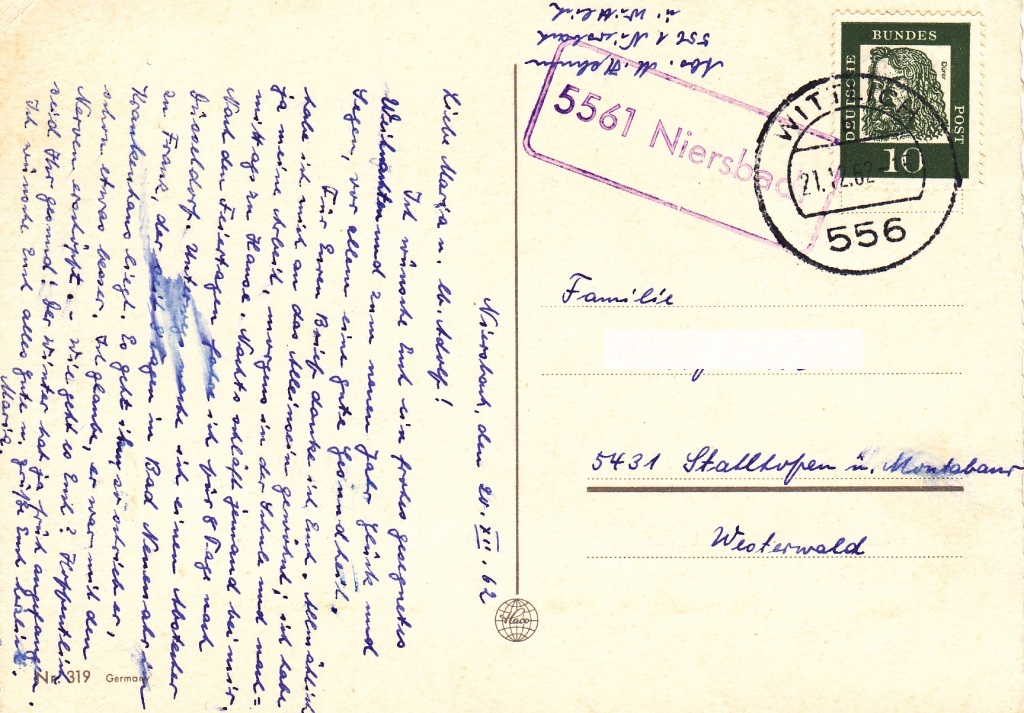 Niersbach, den 20. XII. 62
Liebe Maria u. lb. Adolf!
Ich wünsche Euch ein frohes gesegnetes
Weihnachten und zum neuen Jahr Glück und
Segen, vor allem eine gute Gesundheit.
Für Euren Brief danke ich Euch. Allmählich
habe ich mich an das Alleinsein gewöhnt; ich habe
ja meine Arbeit, morgens in der Schule und nach=
mittags zu Hause. Nachts schläft jemand bei mir.
Nach den Feiertagen fahre ich für 8 Tage nach
Düsseldorf. Unterwegs mache ich einen Abstecher
zu Frank, der seit Tagen in Bad Neuenahr im
Krankenhaus liegt. Es geht ihm, so schrieb er,
schon etwas besser. Ich glaube, er war mit den
Nerven erschöpft. - Wie geht es Euch? Hoffentlich
seid Ihr gesund! Der Winter hat ja früh angefangen.
Ich wünsche Euch alles Gute u. grüße Euch herzlich.
Maria.
Nr. 319 Germany
Haco
Abs. M.
5561 Niersbach
ü. Wittlich
5561 Niersbach
DEUTSCHE BUNDES POST
Dürer
10
WITTLICH
21.12.62
556
Familie
5431 Stahlhofen ü. Montabaur
Westerwald